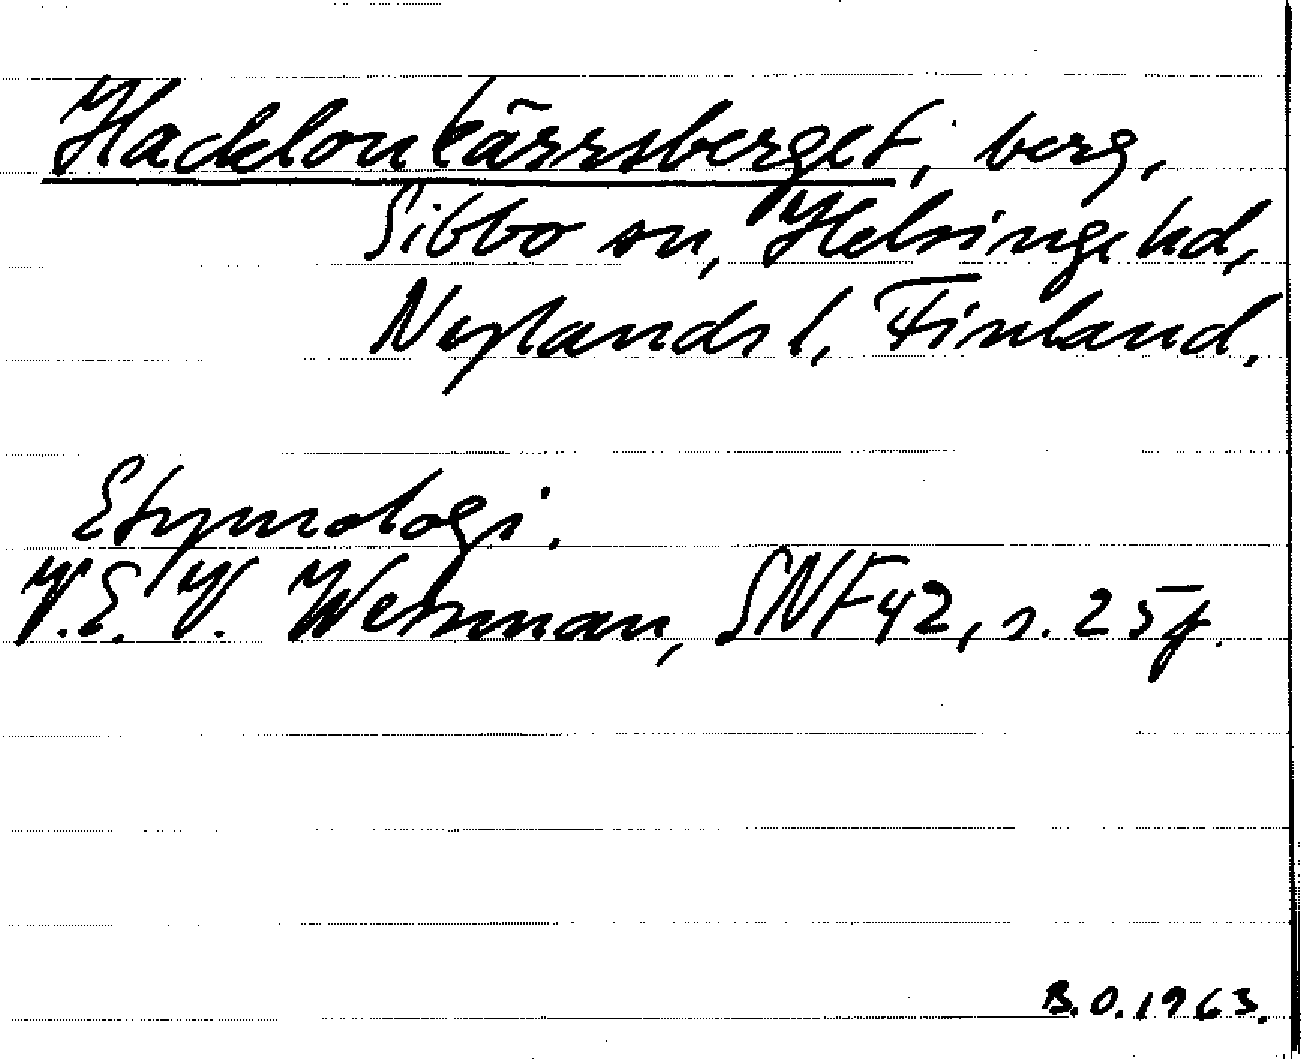 Hacklonkärrsberget, berg,
Sibbo sn, Helsinge hd,
Nylands l, Finland.
Etymologi.
V.E.V. Wessman, SNF 42, s. 25f.
B.O. 1963.